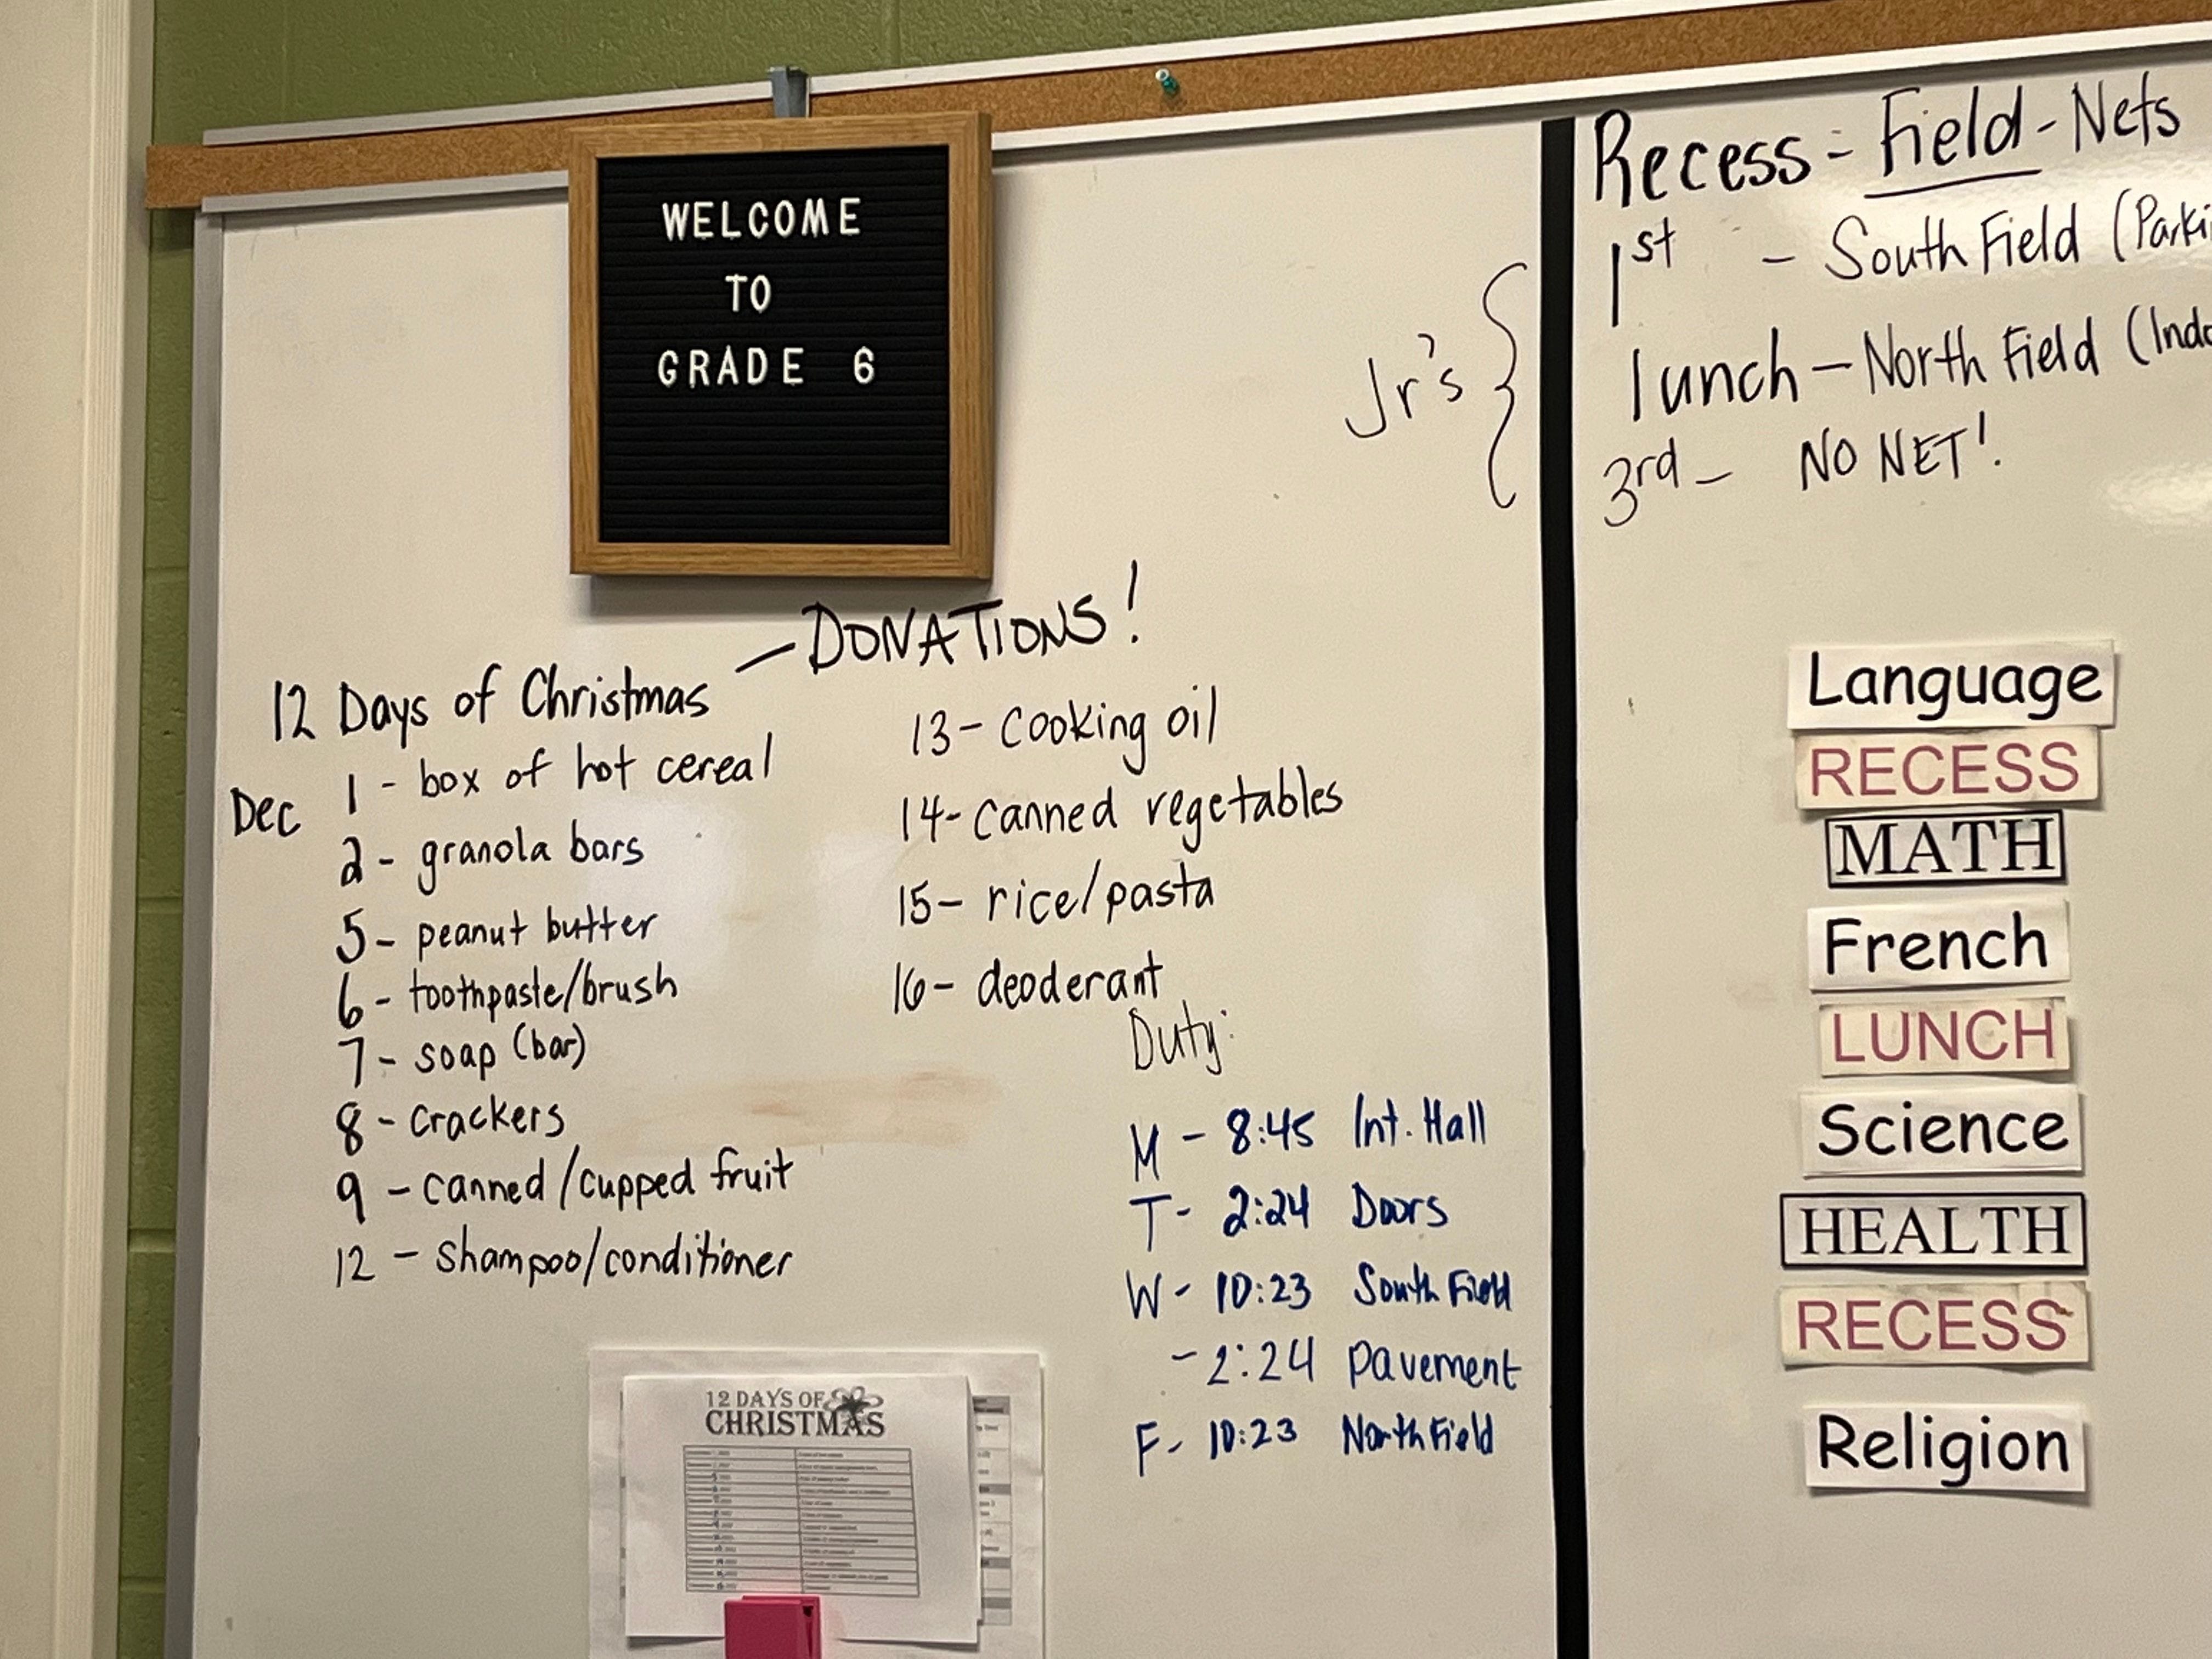 WELCOME
TO
GRADE 6
12 Days of Christmas – DONATIONS!
Dec 1 - box of hot cereal
2 - granola bars
5 - peanut butter
6 - toothpaste/brush
7 - soap (bar)
8 - crackers
9 - canned/cupped fruit
12 - shampoo/conditioner
13 - cooking oil
14 - canned vegetables
15 - rice/pasta
16 - deoderant
Duty:
M - 8:45 Int. Hall
T - 2:24 Doors
W - 10:23 South Field
- 2:24 Pavement
F - 10:23 North Field
12 DAYS OF
CHRISTMAS
Jr's
Recess - Field - Nets
1st - South Field
lunch - North Field
3rd - NO NET!
Language
RECESS
MATH
French
LUNCH
Science
HEALTH
RECESS
Religion